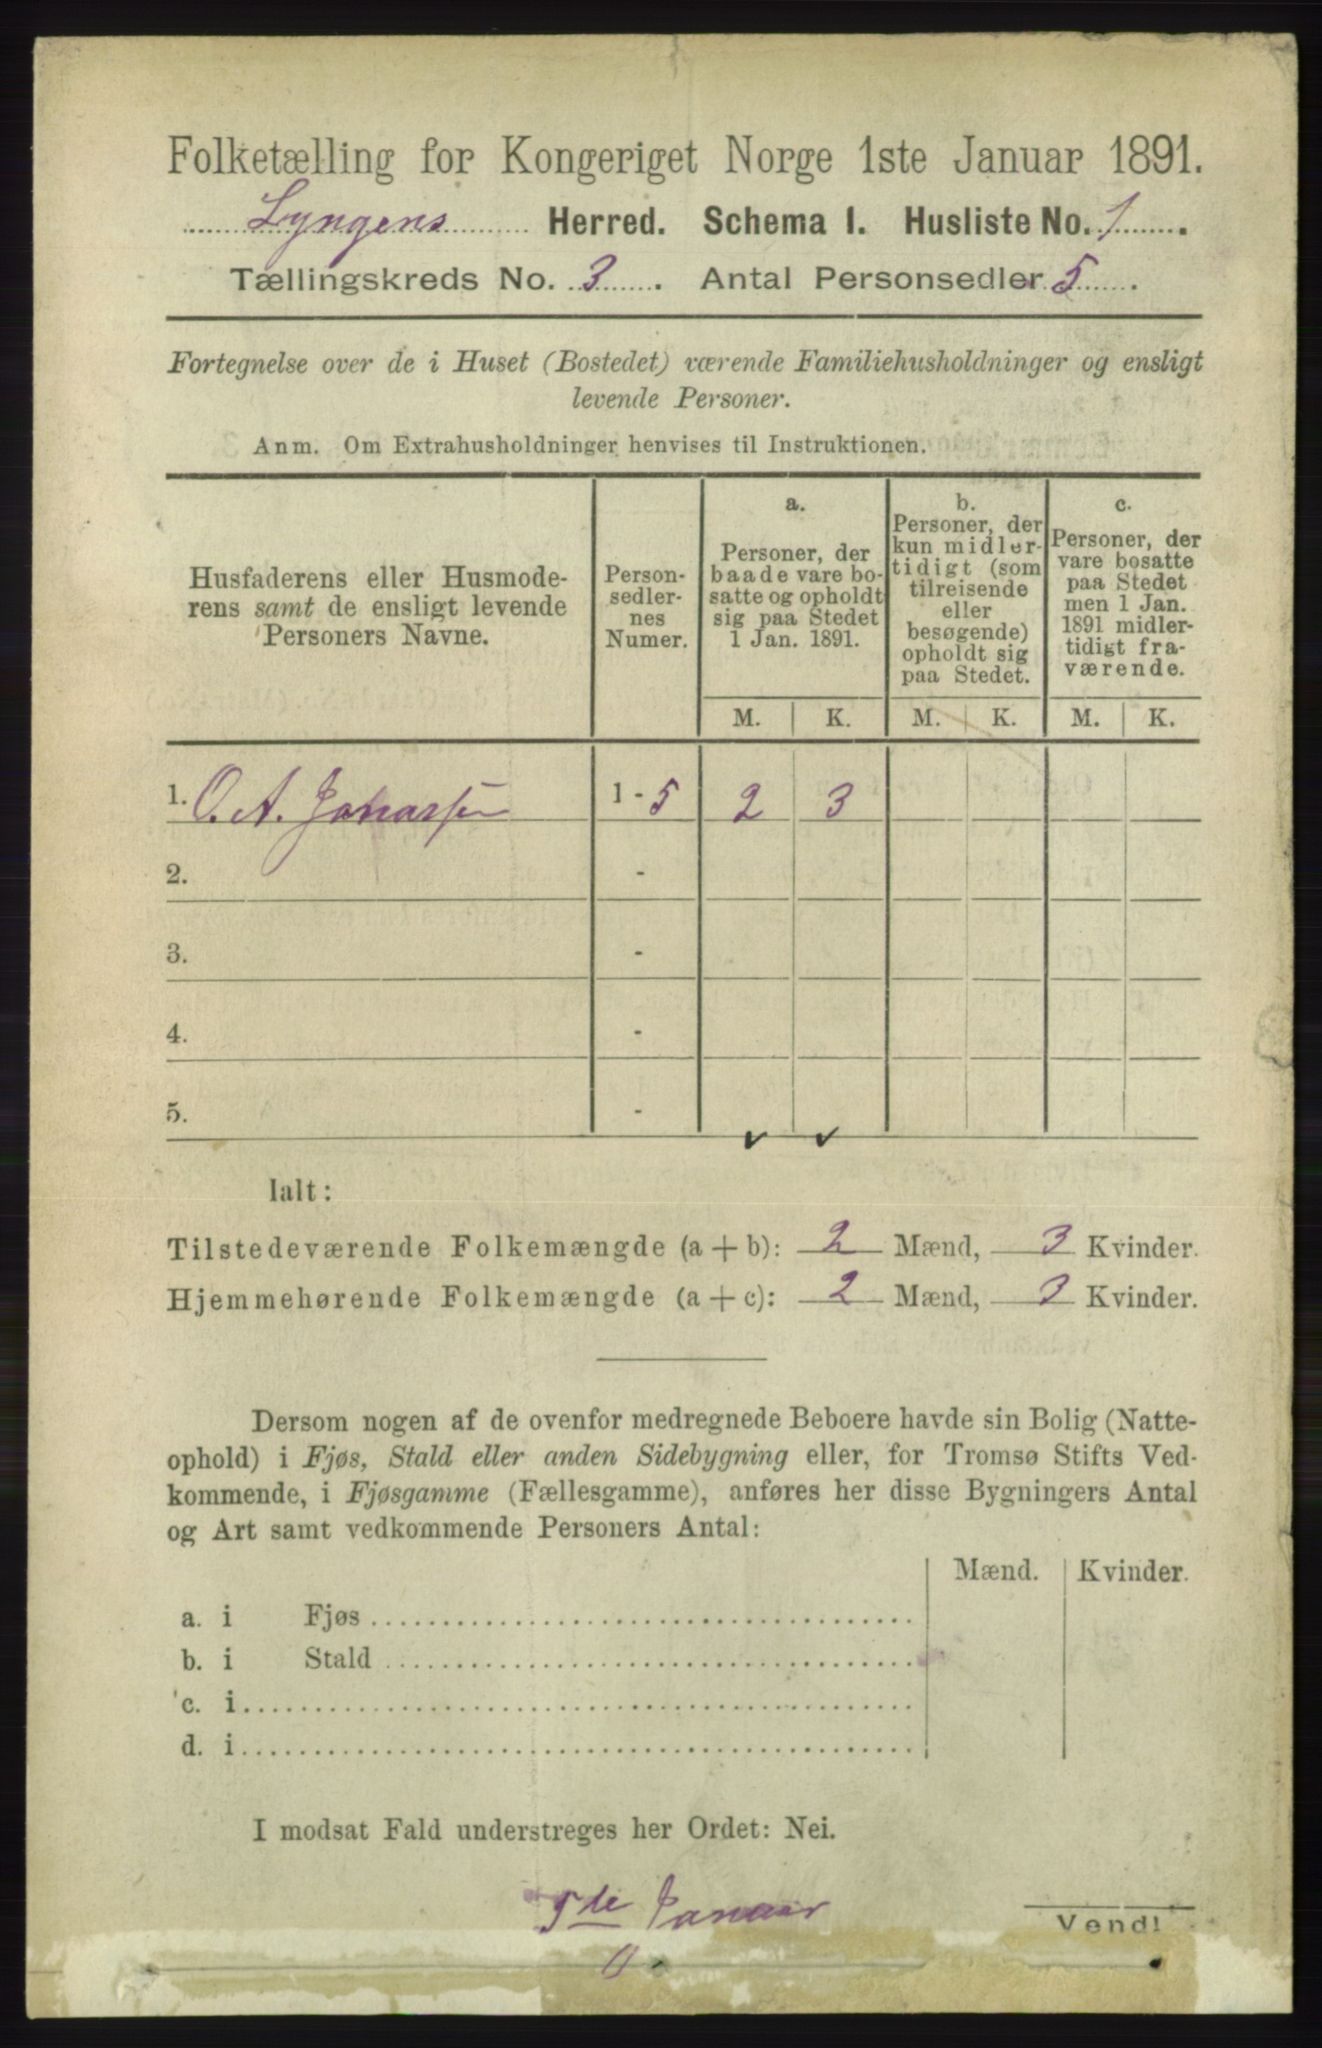 Folketælling for Kongeriget Norge 1ste Januar 1891.
Lyngens Herred. Schema I. Husliste No. 1.
Tællingskreds No. 3. Antal Personsedler 5.
Fortegnelse over de i Huset (Bostedet) værende Familiehusholdninger og ensligt
levende Personer.
Anm. Om Extrahusholdninger henvises til Instruktionen.
Husfaderens eller Husmode-
rens samt de ensligt levende
Personers Navne.
Person-
sedler-
nes
Numer.
a.
Personer, der
baade vare bo-
satte og opholdt
sig paa Stedet
1 Jan. 1891.
b.
Personer, der
kun midler-
tidigt (som
tilreisende
eller
besøgende)
opholdt sig
paa Stedet.
c.
Personer, der
vare bosatte
paa Stedet
men 1 Jan.
1891 midler-
tidigt fra-
værende.
M. K. M. K. M. K.
1. O. A. Johansen 1 - 5 2 3
2. -
3. -
4. -
5. -
Ialt:
Tilstedeværende Folkemængde (a + b): 2 Mænd, 3 Kvinder.
Hjemmehørende Folkemængde (a + c): 2 Mænd, 3 Kvinder.
Dersom nogen af de ovenfor medregnede Beboere havde sin Bolig (Natte-
ophold) i Fjøs, Stald eller anden Sidebygning eller, for Tromsø Stifts Ved-
kommende, i Fjøsgamme (Fællesgamme), anføres her disse Bygningers Antal
og Art samt vedkommende Personers Antal:
Mænd. Kvinder.
a. i Fjøs
b. i Stald
c. i
d. i
I modsat Fald understreges her Ordet: Nei.
5te Januar
Vend!